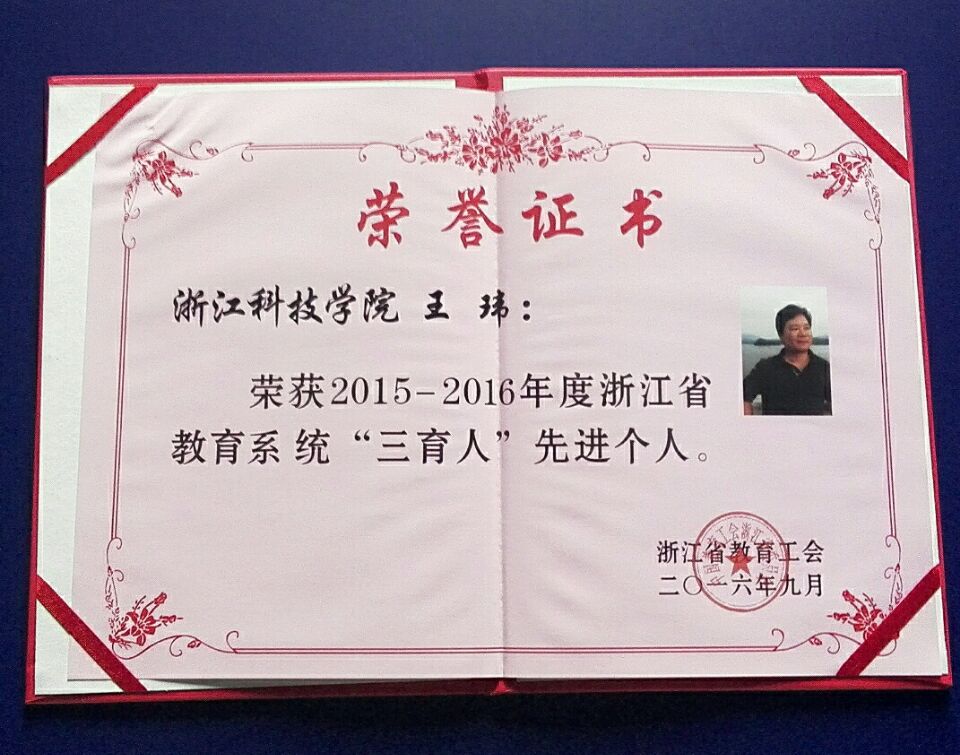 荣誉证书
浙江科技学院 王 玮：
荣获2015-2016年度浙江省
教育系统“三育人”先进个人。
浙江省教育工会
二〇一六年九月